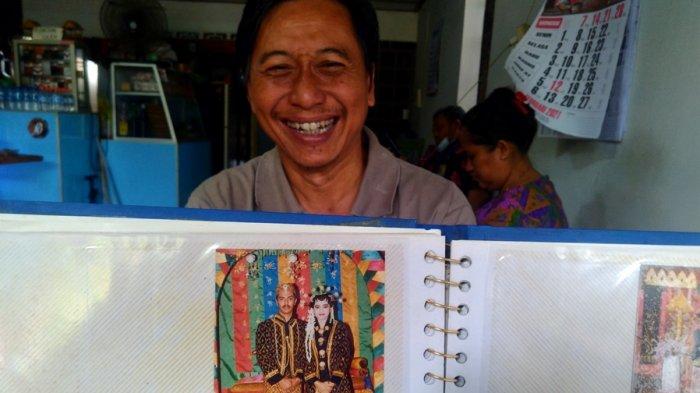 7. 14. 21. 28.
SENIN 1. 8. 15. 22.
SELASA 2. 9. 16. 23.
3. 10. 17. 24.
4. 11. 18. 25.
5. 12. 19. 26.
6. 13. 20. 27.
2021